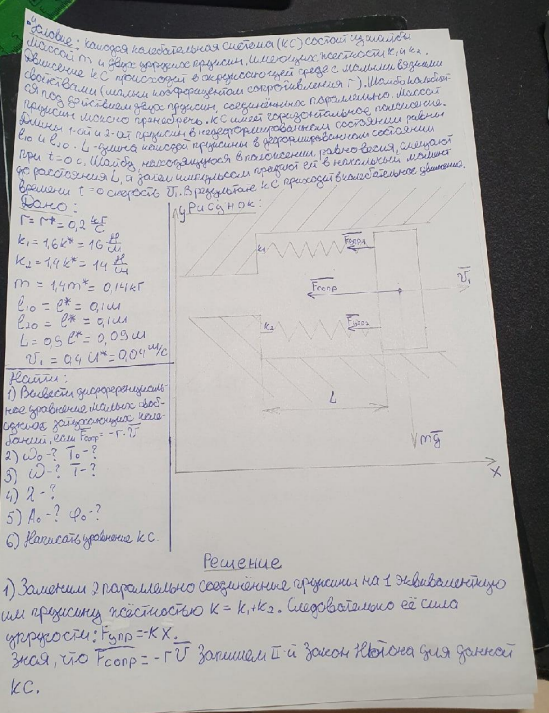 Условие: Каждая колебательная система (КС) состоит из шайбы
массой m и двух упругих пружин, имеющих жесткости k₁ и k₂.
Движение КС происходит в окружающей среде с малыми вязкими
свойствами (малым коэффициентом сопротивления r). Шайба
ся под действием двух пружин, соединённых параллельно. Массой
пружин можно пренебречь. КС имеет горизонтальное положение.
Длины 1-ой и 2-ой пружин в недеформированном состоянии равны
l₁₀ и l₂₀. L - длина каждой пружины в деформированном состоянии
при t=0 с. Шайбу, находящуюся в положении равновесия, смещают
до расстояния L, и затем импульсом придают ей в начальный момент
времени t=0 скорость V₁. В результате КС приходит в колебательное движение.
Дано:
r = r* = 0,2 кг/с
k₁ = 1,6k* = 16 Н/м
k₂ = 1,4k* = 14 Н/м
m = 1,4m* = 0,14 кг
l₁₀ = l* = 0,1м
l₂₀ = l* = 0,1м
L = 0,9 l* = 0,09м
V₁ = 0,4 U* = 0,04 м/с
Найти:
1) Вывести дифференциаль-
ное уравнение малых своб-
одных затухающих коле-
баний, если Fсопр = -r·V
2) ω₀-? T₀-?
3) ω-? T-?
4) λ-?
5) A₀-? φ₀-?
6) Написать уравнение КС.
y Рисунок:
k₁ Fупр1
Fсопр V₁
k₂ Fупр2
L
mg
x
Решение
1) Заменим 2 параллельно соединённые пружины на 1 эквивалентную
им пружину жёсткостью k = k₁+k₂. Следовательно её сила
упругости: Fупр = -kx.
Зная, что Fсопр = -rV Запишем II-й закон Ньютона для данной
КС.